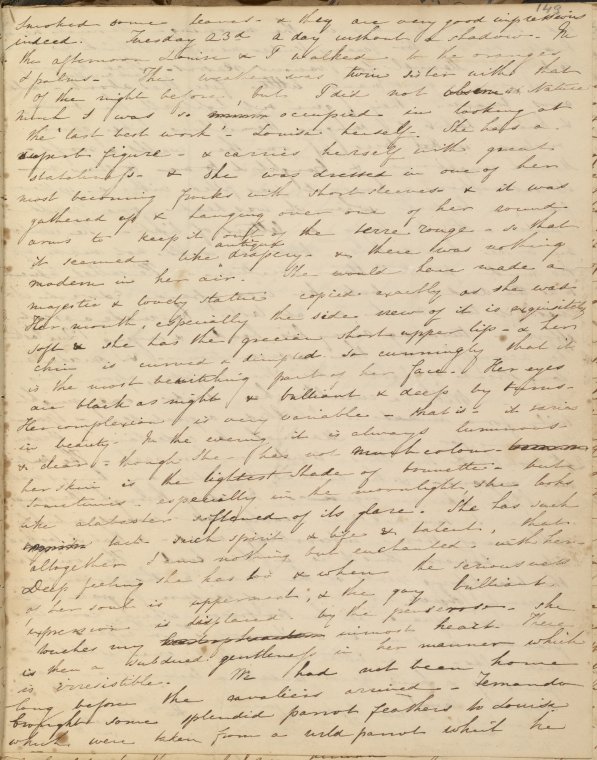 143
smoked some leaves - & they are very good impressions
indeed. Tuesday 23d a day without a shadow - In
the afternoon Louise & I walked to the oranges
& palms - The weather was twin sister with that
of the night before, but I did not observe Nature
much I was so occupied in looking at
the "last best work" - Louise herself - She has a
superb figure - & carries herself with great
stateliness - & she was dressed in one of her
most becoming frocks with short sleeves - & it was
gathered up & hanging over one of her round
arms to keep it out of the terre rouge - so that
it seemed like antique drapery - & there was nothing
modern in her air. She would have made a
majestic & lovely statue copied exactly as she was
Her mouth, especially the side view of it is exquisitely
soft & she has the grecian short upper lip - & her
chin is curved & dimpled so cunningly that it
is the most bewitching part of her face - Her eyes
are black as night & brilliant & deep by turns -
Her complexion is very variable - that is - it varies
in beauty - In the evening it is always luminous
& clear - though she has not much colour -
her skin is the lightest shade of brunette - but
sometimes - especially in the moonlight she looks
like alabaster softened of its glare. She has such
tact - such spirit & life & talent, that
altogether I am nothing but enchanted with her -
Deep feeling she has too & when the seriousness
of her soul is uppermost, & the gay brilliant
expression is displaced by the penseroso - she
touches my inmost heart There
is then a subdued gentleness in her manner which
is irresistible. We had not been home
long before the cavaliers arrived - Fernando
brought some splendid parrot feathers to Louise
which were taken from a wild parrot which he